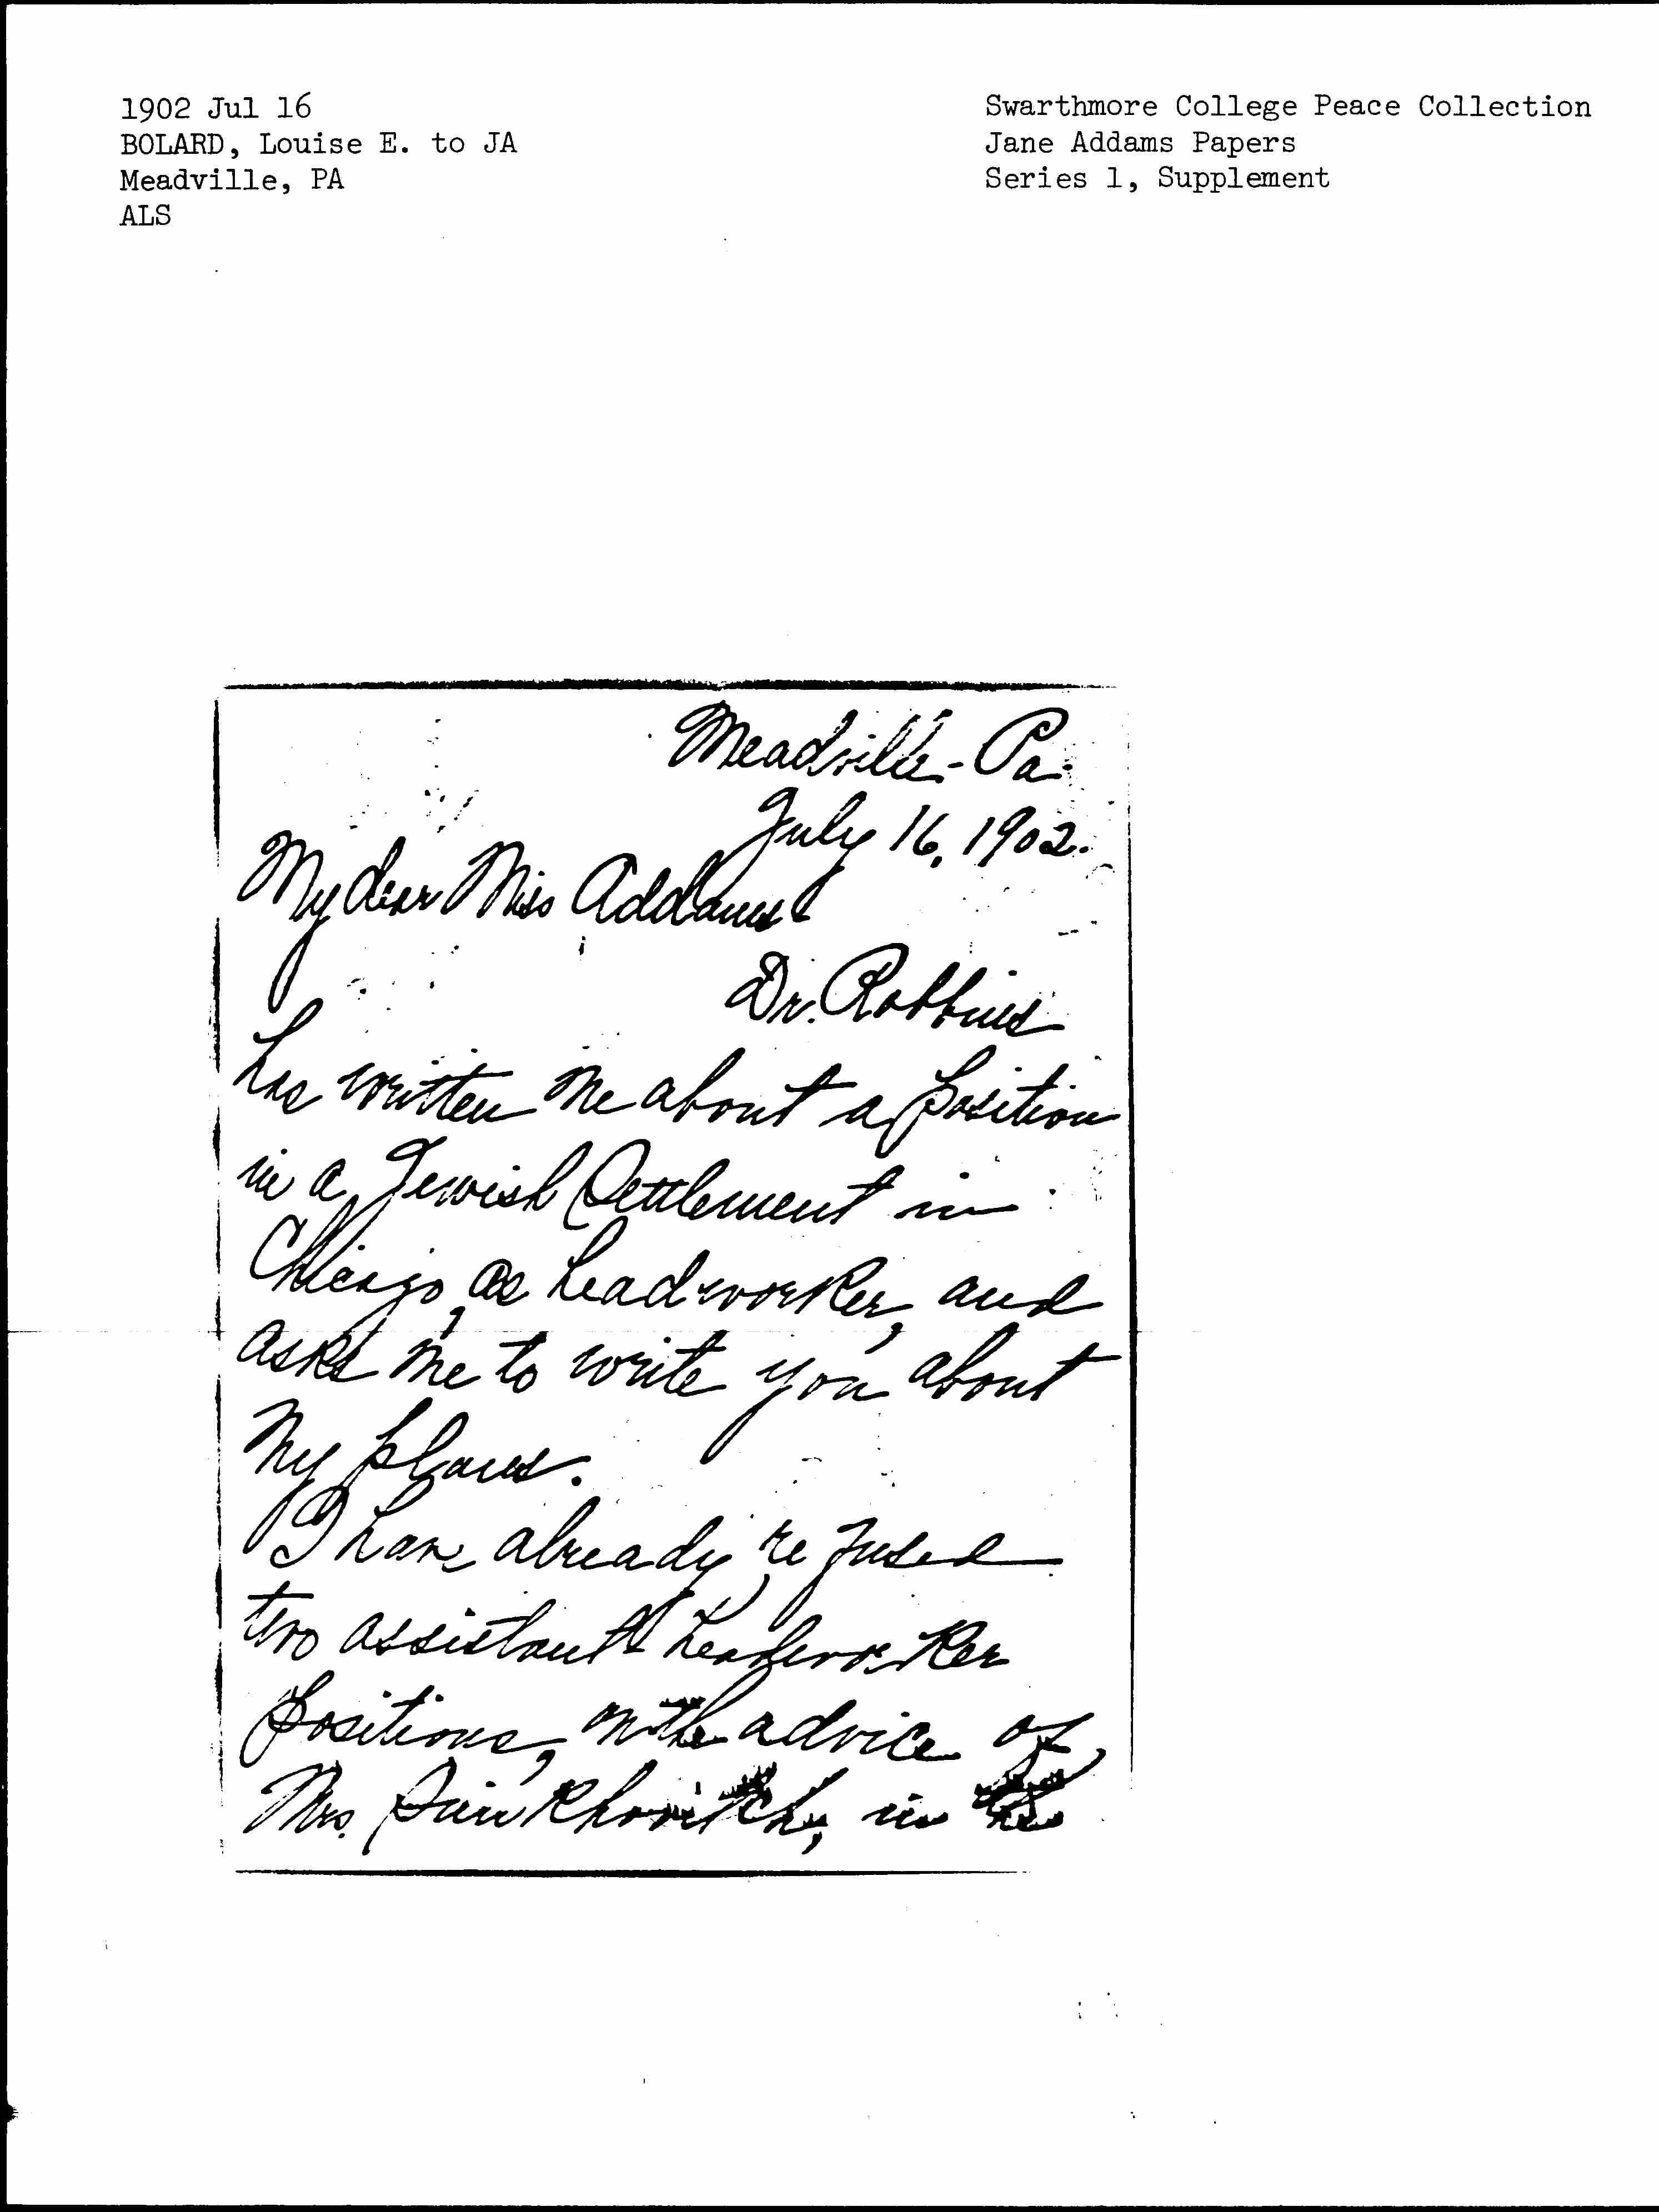 1902 Jul 16
BOLARD, Louise E. to JA
Meadville, PA
ALS
Swarthmore College Peace Collection
Jane Addams Papers
Series 1, Supplement
Meadville - Pa.
July 16, 1902.
My dear Miss Addams
Dr. Robbins
has written me about a position
in a Jewish Settlement in
Chicago, as headworker, and
asks me to write you about
my plans.
I have already refused
two assistant headworker
positions, on the advice of
Mrs. Simkhovitch, in the